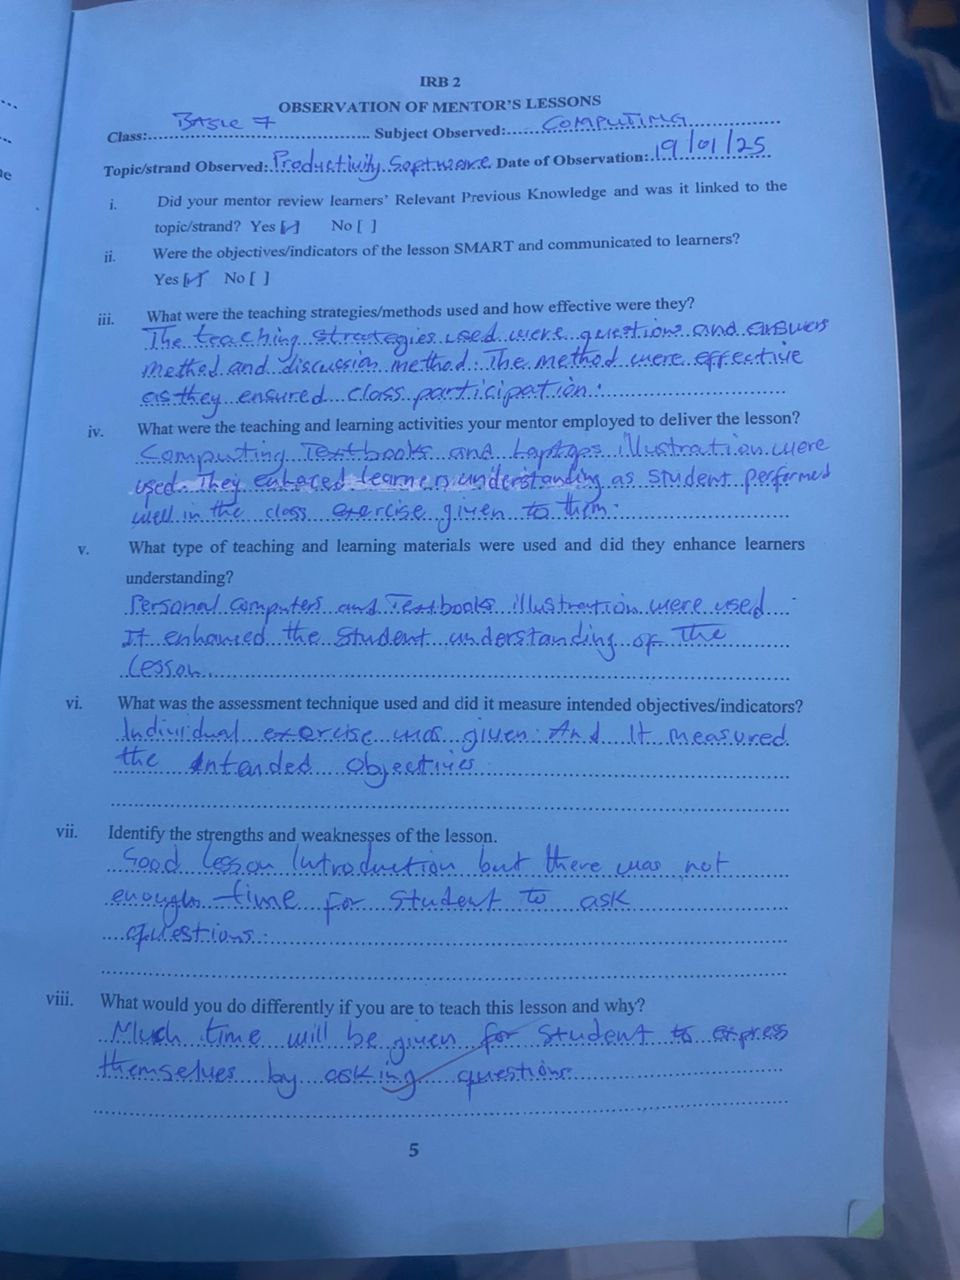 IRB 2
OBSERVATION OF MENTOR'S LESSONS
Class:.... Basic 7 .... Subject Observed:.... COMPUTING ....
Topic/strand Observed: Productivity Software Date of Observation: 19/01/25
i. Did your mentor review learners' Relevant Previous Knowledge and was it linked to the
topic/strand? Yes [✓] No [ ]
ii. Were the objectives/indicators of the lesson SMART and communicated to learners?
Yes [✓] No [ ]
iii. What were the teaching strategies/methods used and how effective were they?
The teaching strategies used were questions and answers
method and discussion method. The method were effective
as they ensured class participation.
iv. What were the teaching and learning activities your mentor employed to deliver the lesson?
Computing Textbooks and Laptops illustration were
used. They enhaced learners understanding as student performed
well in the class exercise given to them.
v. What type of teaching and learning materials were used and did they enhance learners
understanding?
Personal computers and Textbooks illustration were used
It enhanced the student understanding of the
lesson.
vi. What was the assessment technique used and did it measure intended objectives/indicators?
Individual exercise was given. And It measured
the intended objectives
vii. Identify the strengths and weaknesses of the lesson.
Good lesson Introduction but there was not
enough time for student to ask
questions.
viii. What would you do differently if you are to teach this lesson and why?
Much time will be given for student to express
themselves by asking questions
5